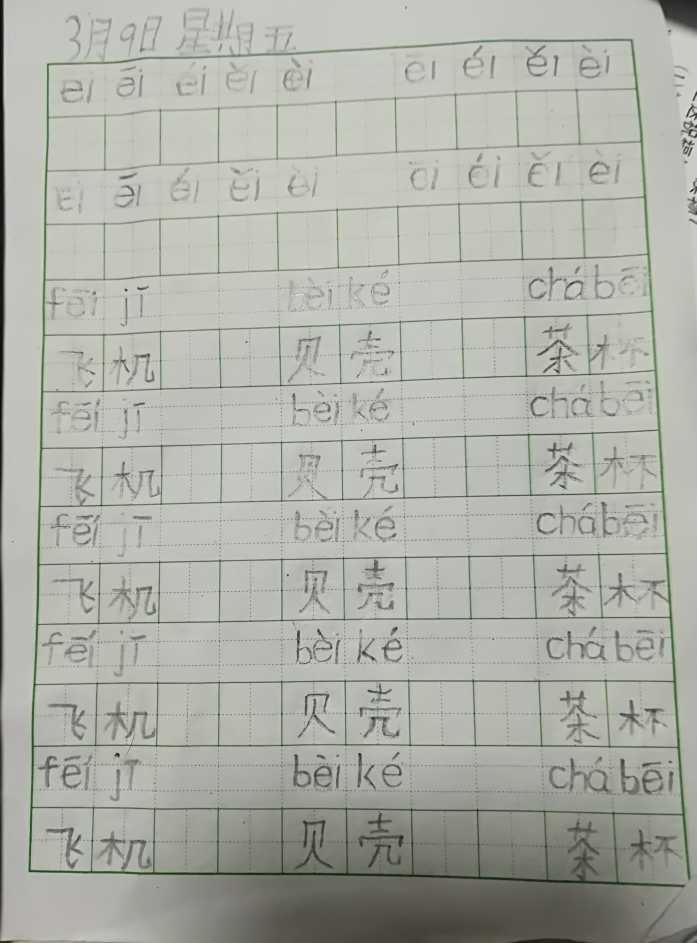 3月9日 星期五
ei ēi éi ěi èi ēi éi ěi èi
ei ēi éi ěi èi ēi éi ěi èi
fēi jī bèi ké chá bēi
飞机 贝壳 茶杯
fēi jī bèi ké chá bēi
飞机 贝壳 茶杯
fēi jī bèi ké chá bēi
飞机 贝壳 茶杯
fēi jī bèi ké chá bēi
飞机 贝壳 茶杯
fēi jī bèi ké chá bēi
飞机 贝壳 茶杯